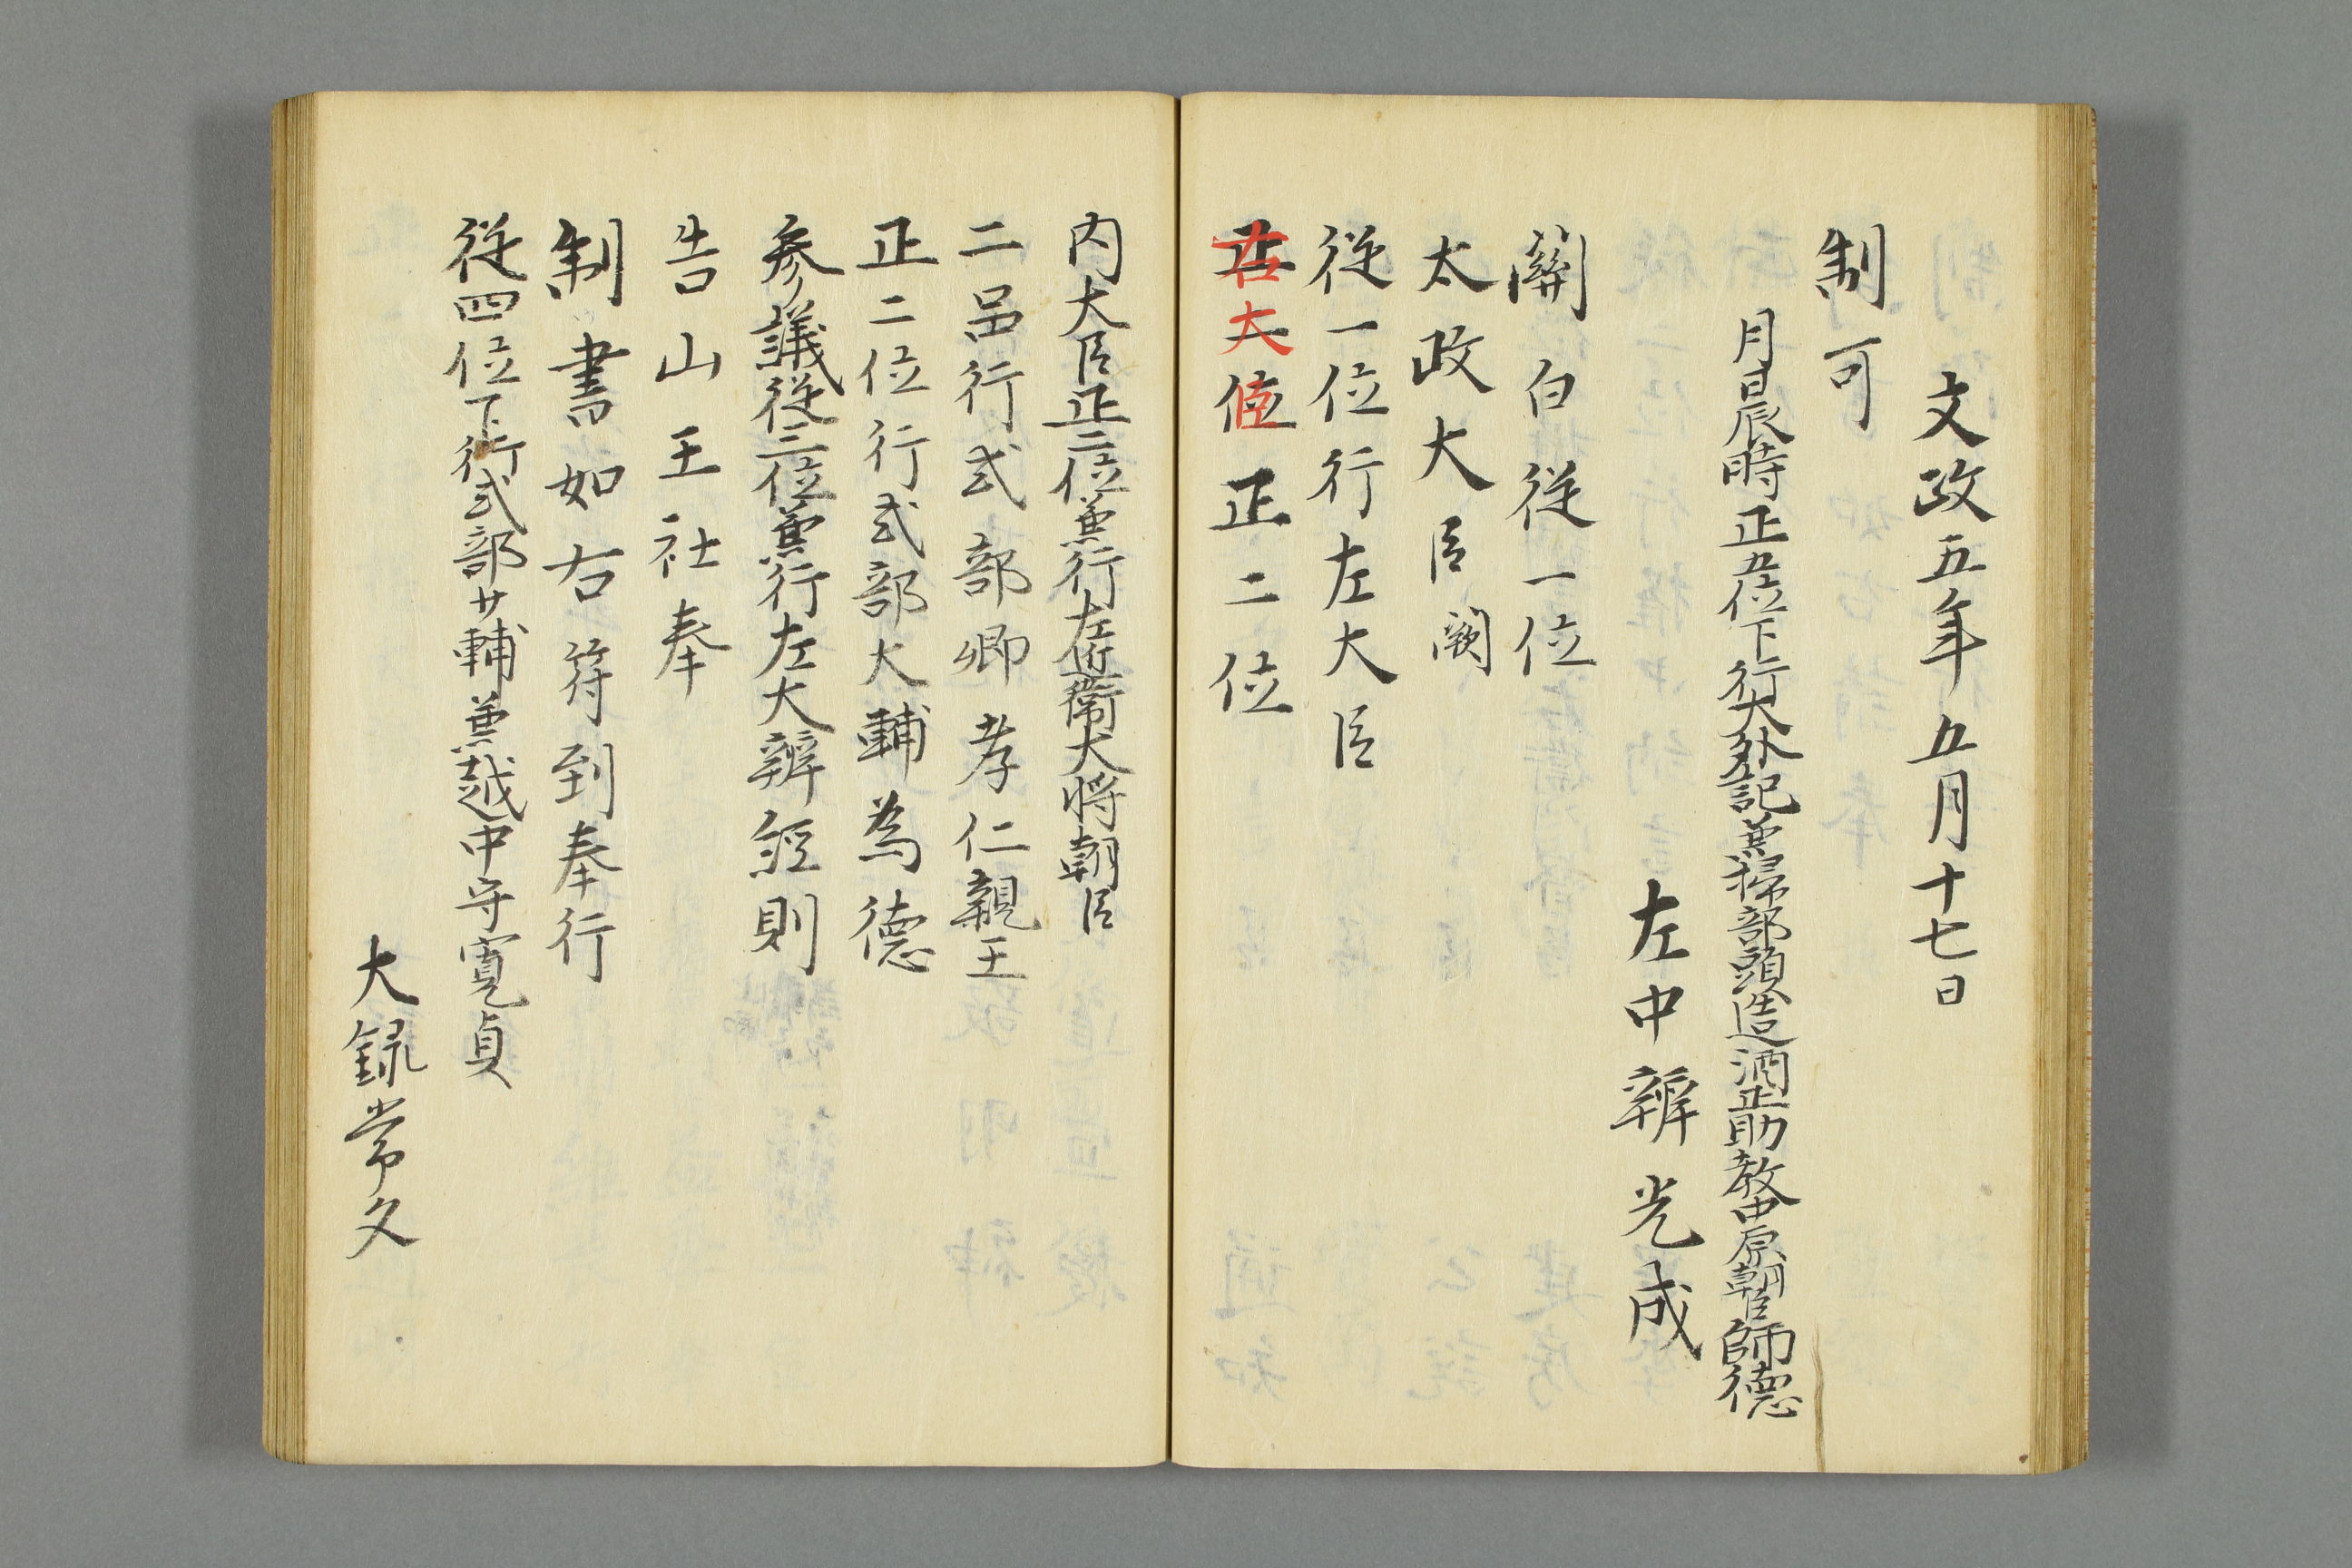 文政五年五月十七日
制可
月日辰時正五位下行大外記兼掃部頭造酒正助教中原朝臣師徳
左中辨光成
關白従一位
太政大臣闕
従一位行左大臣
右大臣正二位
内大臣正二位兼行左近衛大将朝臣
二品行式部卿孝仁親王
正二位行式部大輔為徳
参議従三位兼行左大辨経則
告山王社奉
制書如右符到奉行
従四位下行式部少輔兼越中守寛貞
大録常久